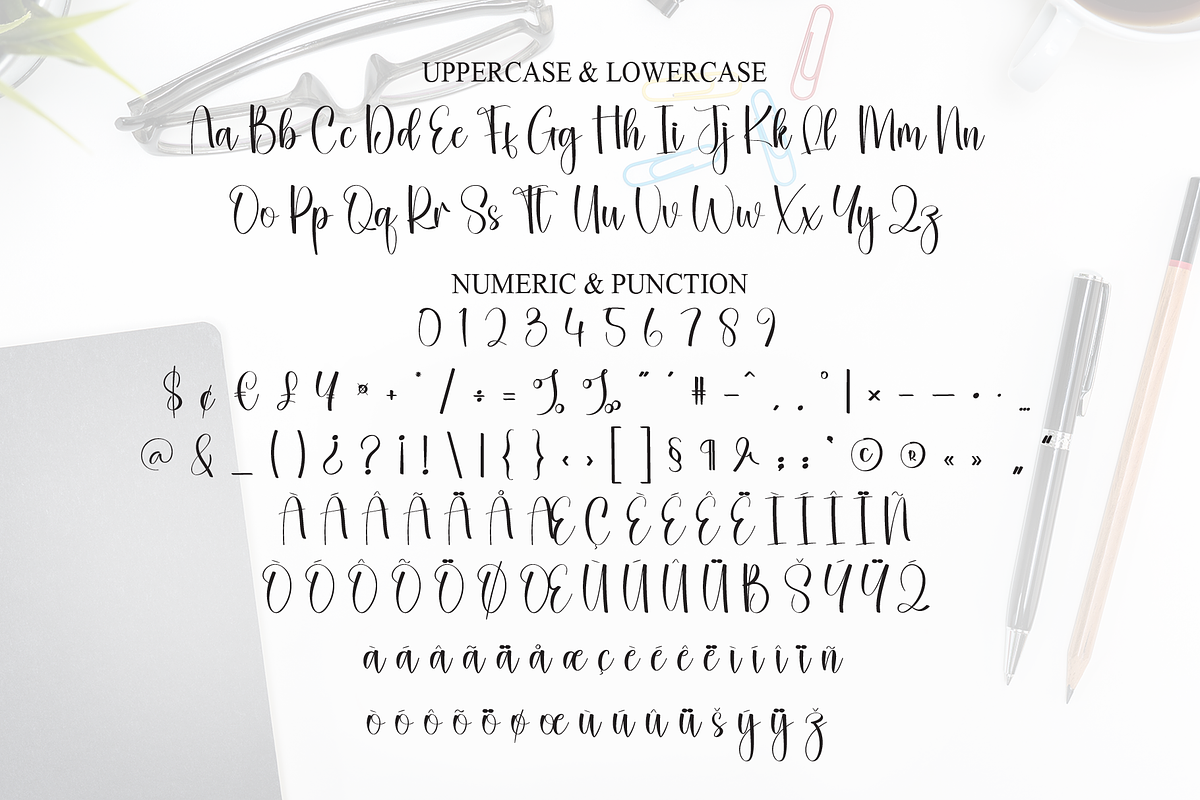 UPPERCASE & LOWERCASE
Aa Bb Cc Dd Ee Ff Gg Hh Ii Jj Kk Ll Mm Nn
Oo Pp Qq Rr Ss Tt Uu Vv Ww Xx Yy Zz
NUMERIC & PUNCTION
0 1 2 3 4 5 6 7 8 9
$ ¢ € £ ¥ ¤ + * / ÷ = % ‰ " ' # - ^ , . ° | × – — • · …
@ & _ ( ) ¿ ? ¡ ! \ | { } ‹ › [ ] § ¶ ; : ‘ © ® « » „ “
À Á Â Ã Ä Å Æ Ç È É Ê Ë Ì Í Î Ï Ñ
Ò Ó Ô Õ Ö Ø Œ Ù Ú Û Ü Š Ý Ÿ
à á â ã ä å æ ç è é ê ë ì í î ï ñ
ò ó ô õ ö ø œ ù ú û ü š ý ÿ ž